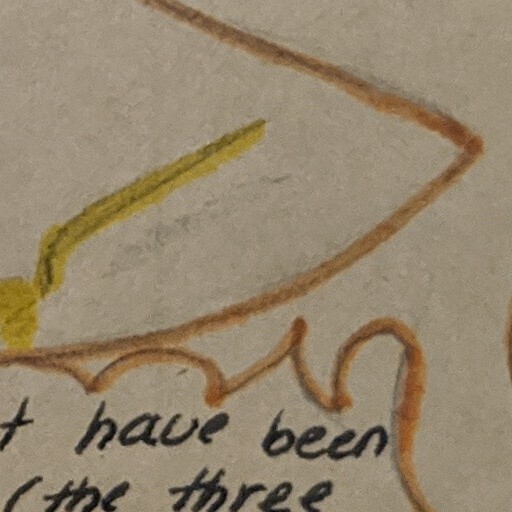 have been
(the three